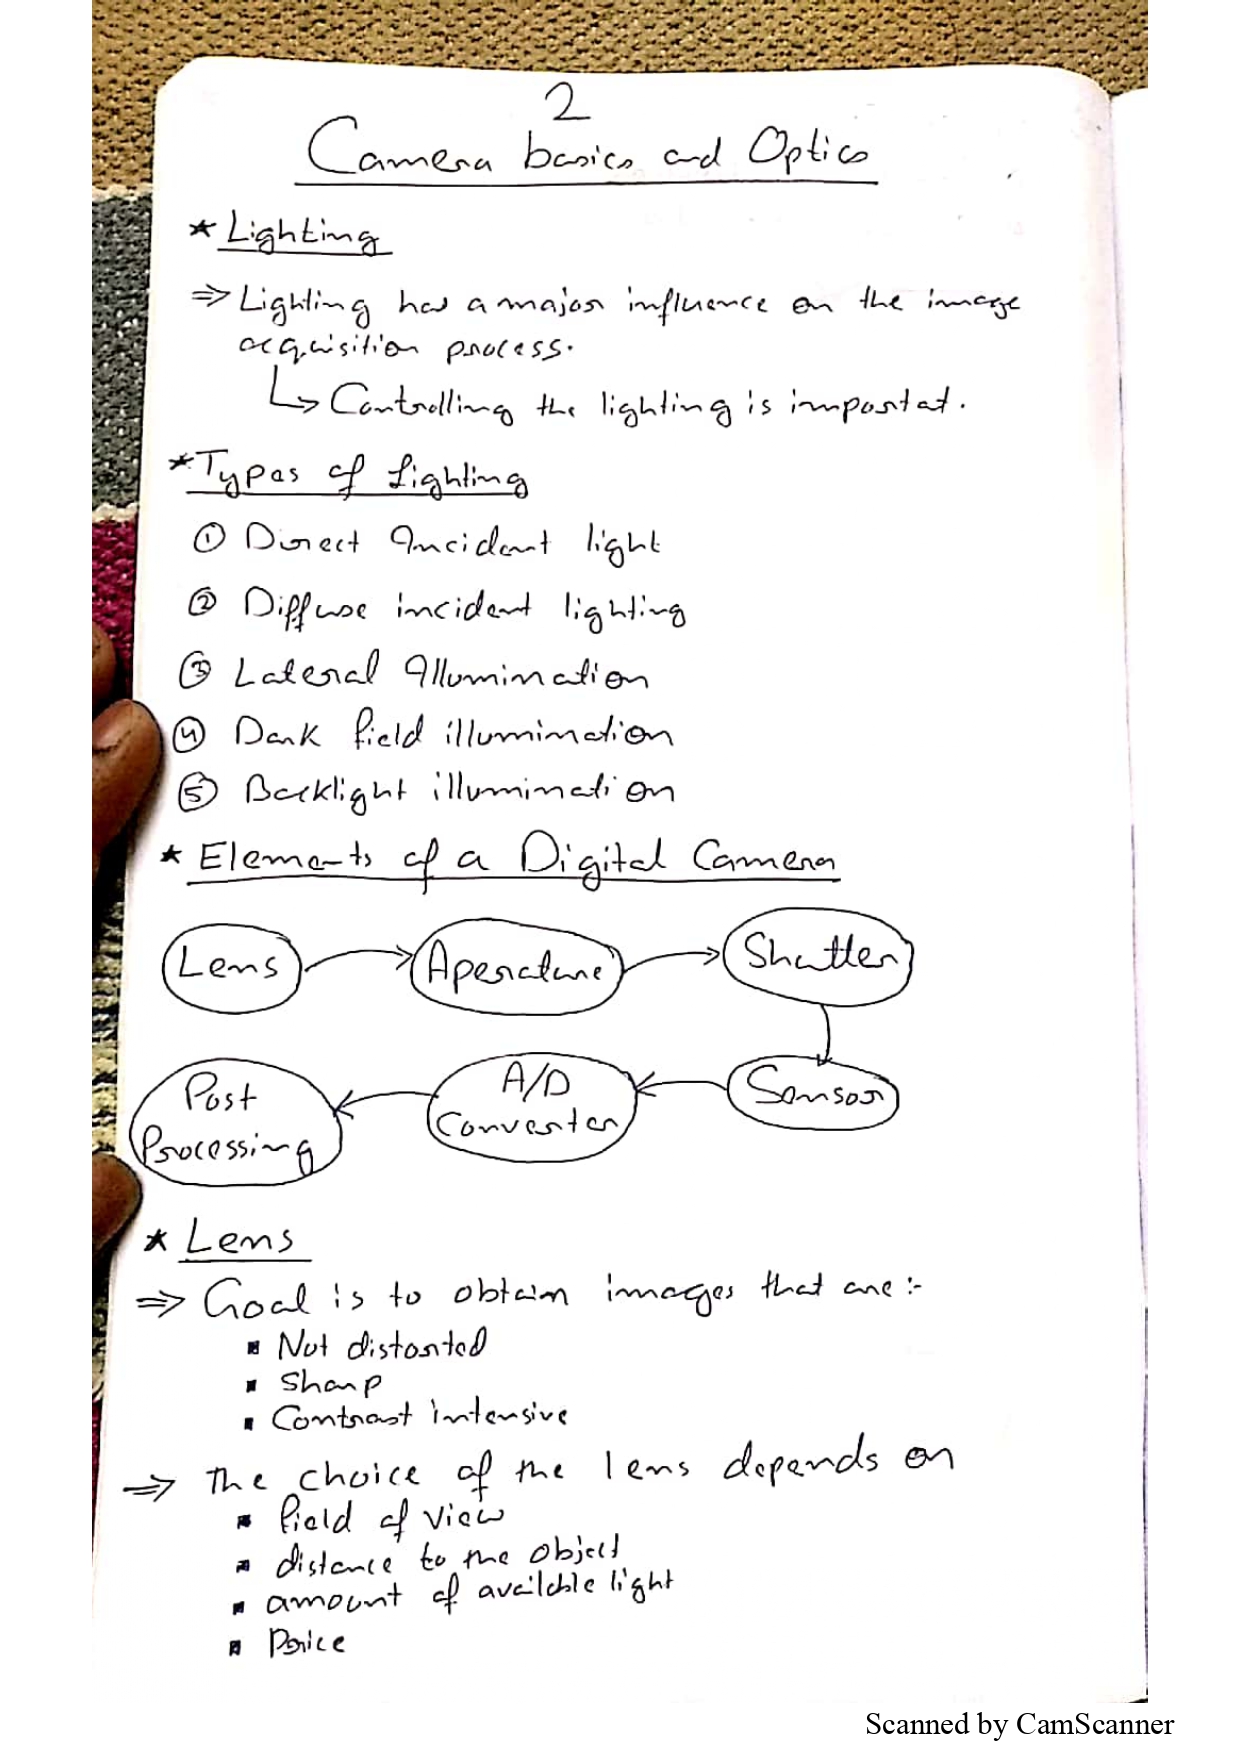 2
Camera basics and Optics
* Lighting
⇒ Lighting has a major influence on the image
acquisition process.
↳ Controlling the lighting is importat.
* Types of Lighting
① Direct Incident light
② Diffuse incident lighting
③ Lateral Illumination
④ Dark field illumination
⑤ Backlight illumination
* Elements of a Digital Camera
Lens → Aperature → Shutter
Post A/D Sensor
Processing Converter
* Lens
⇒ Goal is to obtain images that are :-
▪ Not distorted
▪ Sharp
▪ Contrast intensive
⇒ The choice of the lens depends on
▪ field of view
▪ distance to the object
▪ amount of available light
▪ Price
Scanned by CamScanner